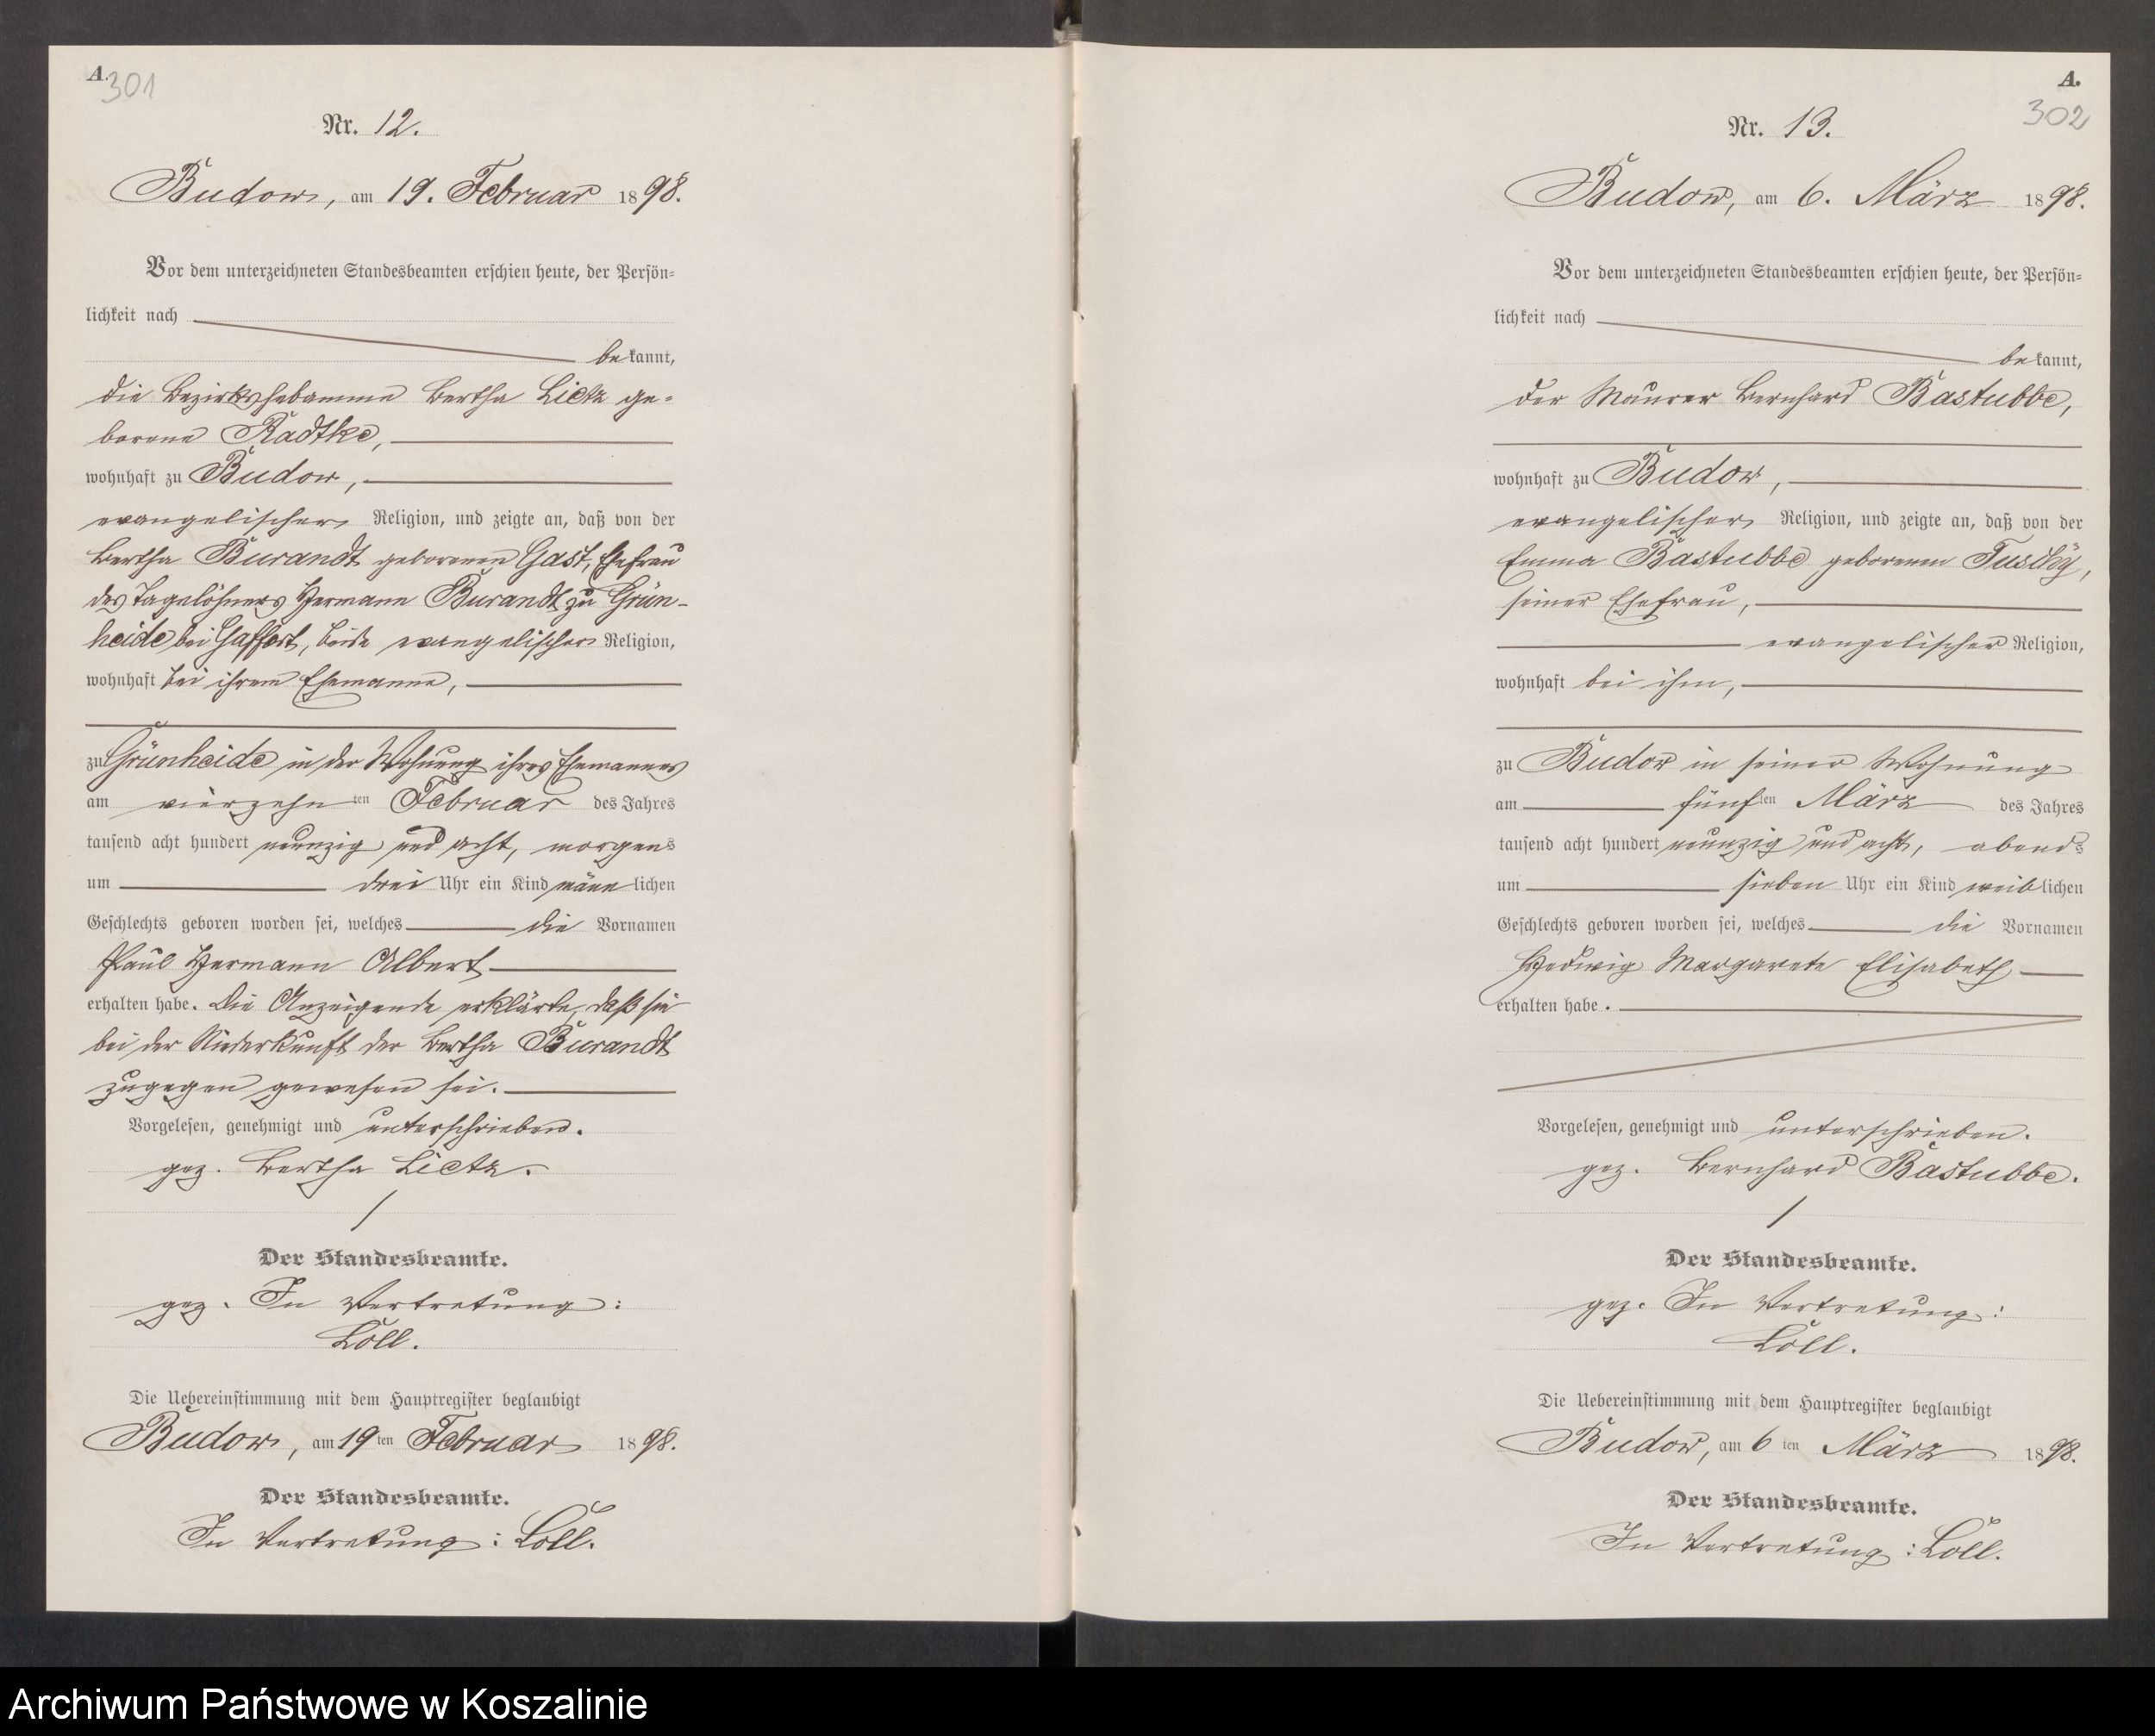 A.
301
Nr. 12.
Budow, am 19. Februar 1898.
Vor dem unterzeichneten Standesbeamten erschien heute, der Persön-
lichkeit nach
bekannt,
die Bezirkshebamme Bertha Lietz ge-
borene Radtke,
wohnhaft zu Budow,
evangelischer Religion, und zeigte an, daß von der
Bertha Burandt geborenen Gast, Ehefrau
des Tagelöhners Hermann Burandt zu Grün-
heide bei Gaffert, beide evangelischer Religion,
wohnhaft bei ihrem Ehemanne,
zu Grünheide in der Wohnung ihres Ehemannes
am vierzehnten Februar des Jahres
tausend acht hundert neunzig und acht, morgens
um drei Uhr ein Kind männlichen
Geschlechts geboren worden sei, welches die Vornamen
Paul Hermann Albert
erhalten habe. Die Anzeigende erklärte, daß sie
bei der Niederkunft der Bertha Burandt
zugegen gewesen sei.
Vorgelesen, genehmigt und unterschrieben.
gez. Bertha Lietz.
Der Standesbeamte.
gez. In Vertretung:
Löll.
Die Uebereinstimmung mit dem Hauptregister beglaubigt
Budow, am 19ten Februar 1898.
Der Standesbeamte.
In Vertretung: Löll.
A.
302
Nr. 13.
Budow, am 6. März 1898.
Vor dem unterzeichneten Standesbeamten erschien heute, der Persön-
lichkeit nach
bekannt,
der Maurer Bernhard Bastubbe,
wohnhaft zu Budow,
evangelischer Religion, und zeigte an, daß von der
Emma Bastubbe geborenen Tuschy,
seiner Ehefrau,
evangelischer Religion,
wohnhaft bei ihm,
zu Budow in seiner Wohnung
am fünften März des Jahres
tausend acht hundert neunzig und acht, abends
um sieben Uhr ein Kind weiblichen
Geschlechts geboren worden sei, welches die Vornamen
Hedwig Margarete Elisabeth
erhalten habe.
Vorgelesen, genehmigt und unterschrieben.
gez. Bernhard Bastubbe.
Der Standesbeamte.
gez. In Vertretung:
Löll.
Die Uebereinstimmung mit dem Hauptregister beglaubigt
Budow, am 6ten März 1898.
Der Standesbeamte.
In Vertretung: Löll.
Archiwum Państwowe w Koszalinie